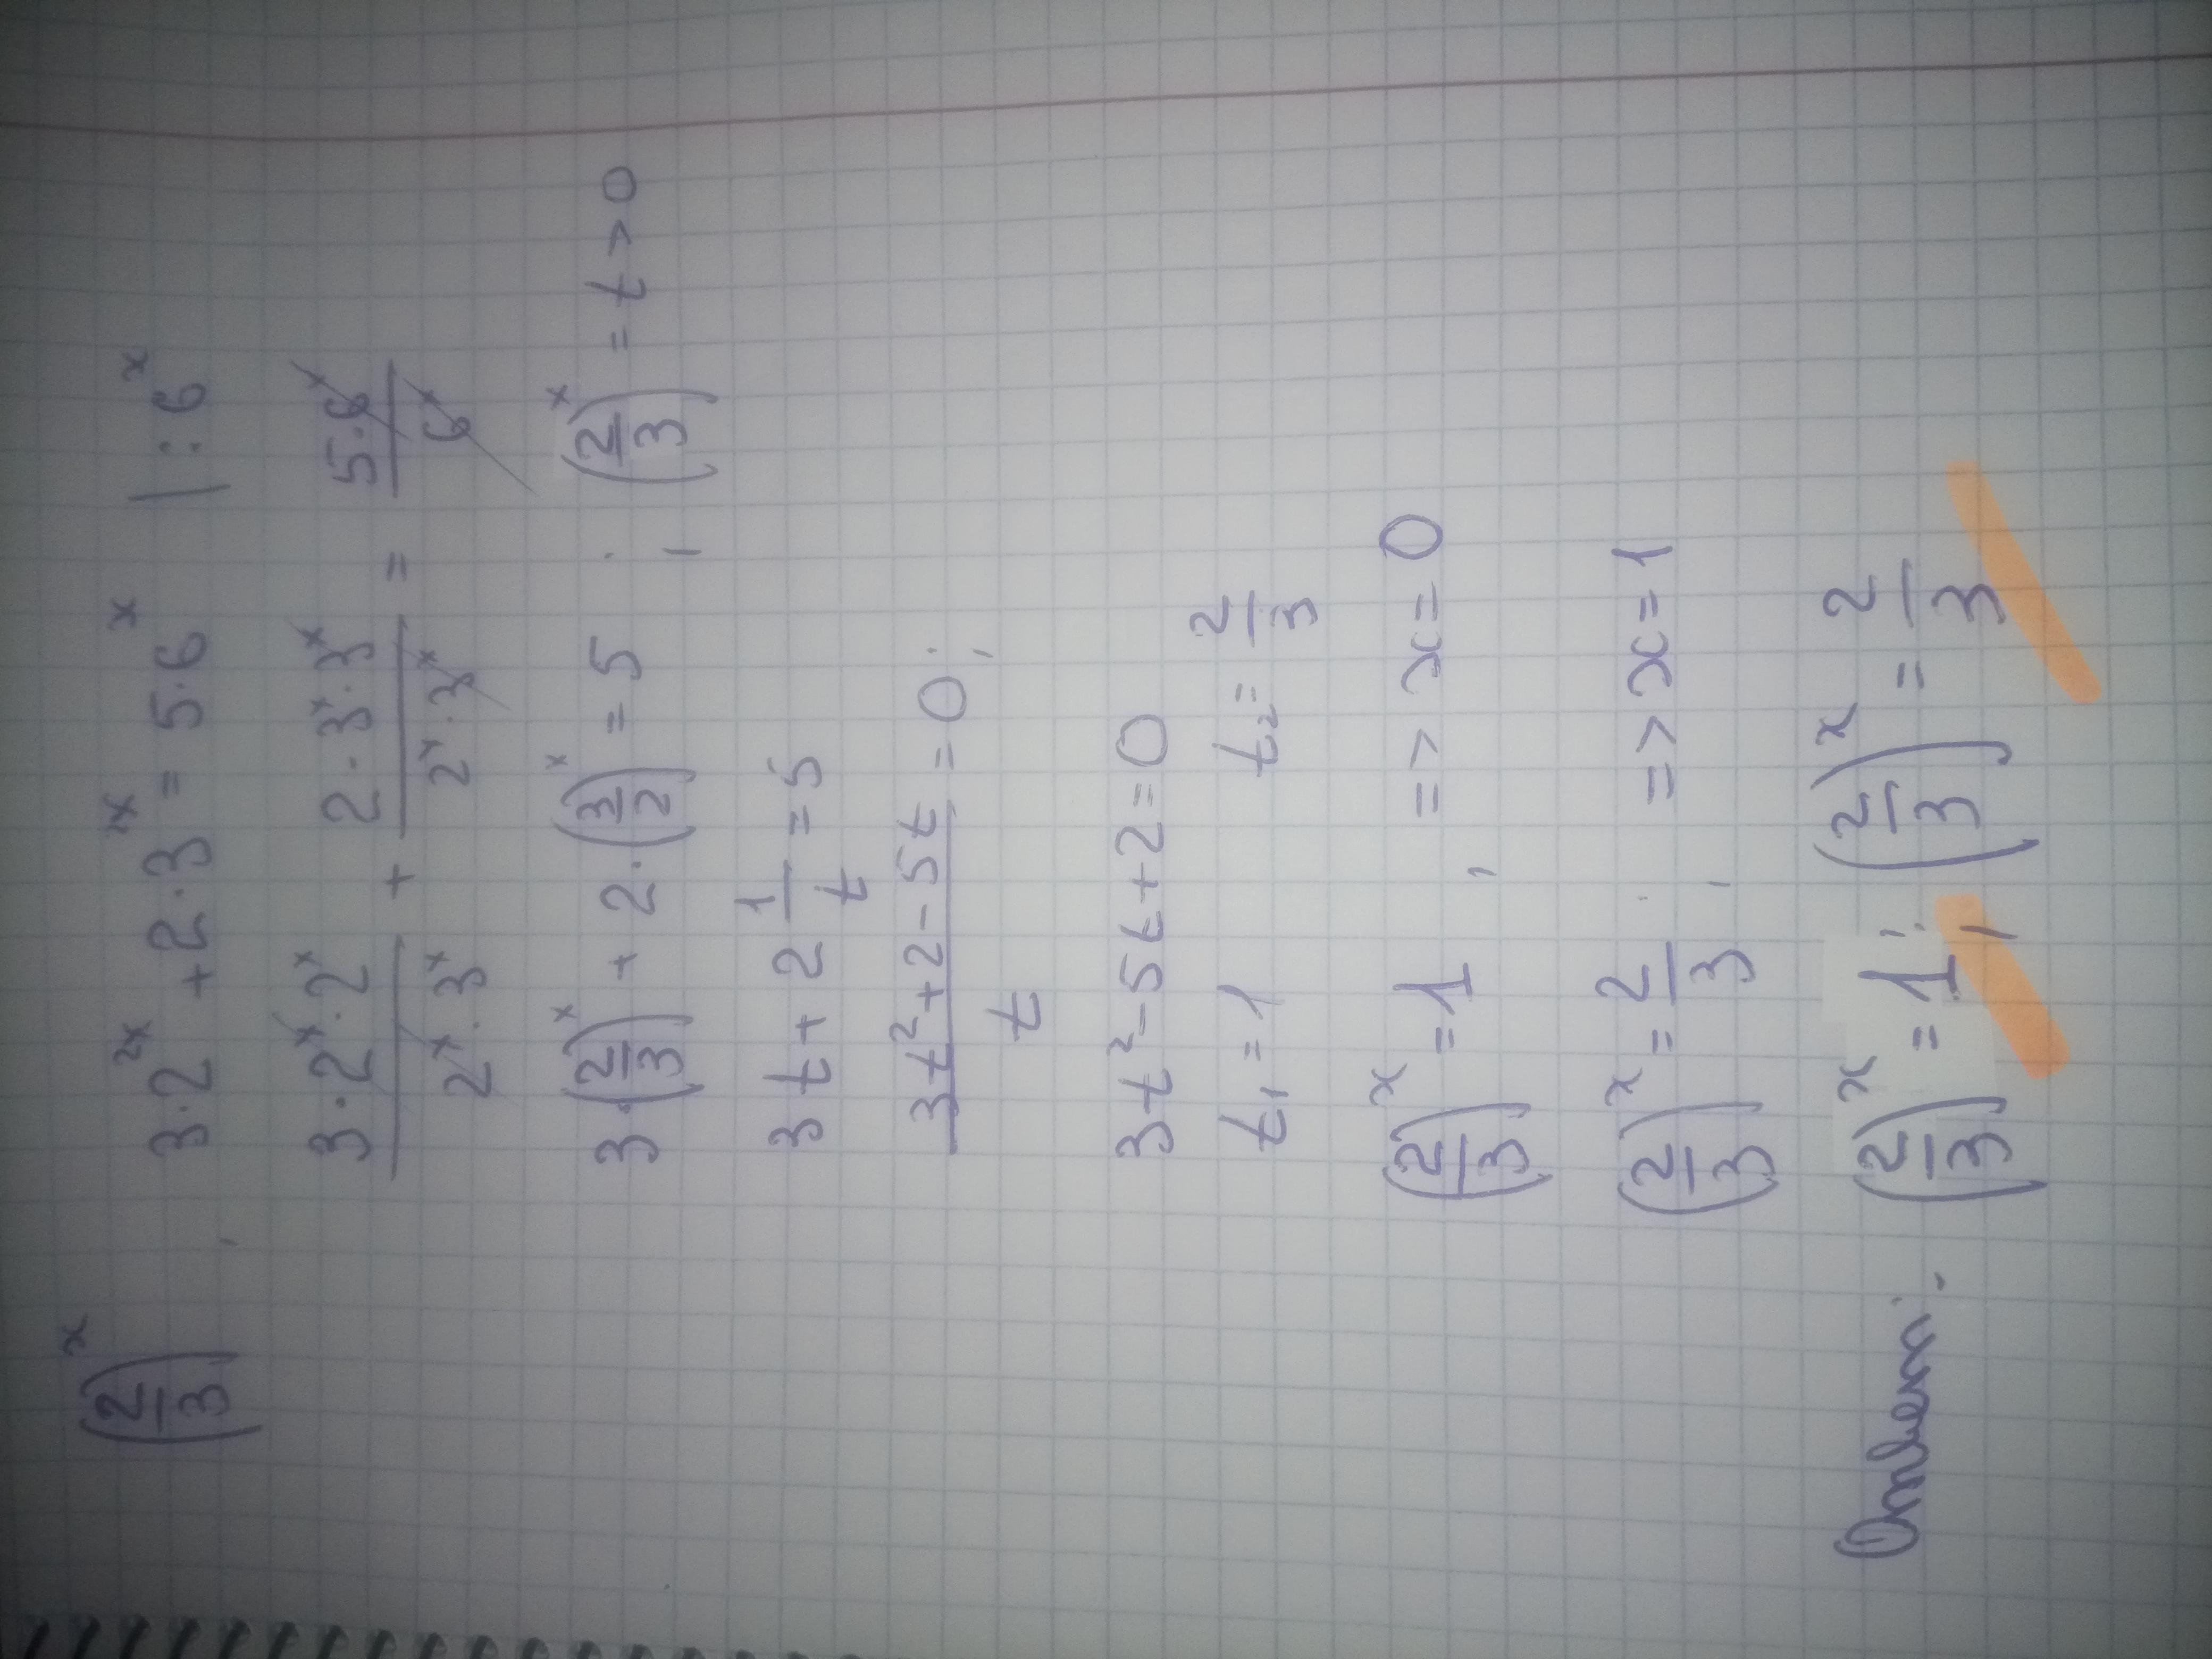 (2/3)^x
3·2^{2x} + 2·3^{2x} = 5·6^x | : 6^x
(3·2^x·2^x)/(2^x·3^x) + (2·3^x·3^x)/(2^x·3^x) = (5·6^x)/(6^x)
3·(2/3)^x + 2·(3/2)^x = 5 ; (2/3)^x = t > 0
3t + 2 1/t = 5
(3t² + 2 - 5t)/t = 0 ;
3t² - 5t + 2 = 0
t₁ = 1 t₂ = 2/3
(2/3)^x = 1 , => x = 0
(2/3)^x = 2/3 ; => x = 1
Ответ: (2/3)^x = 1 ; (2/3)^x = 2/3